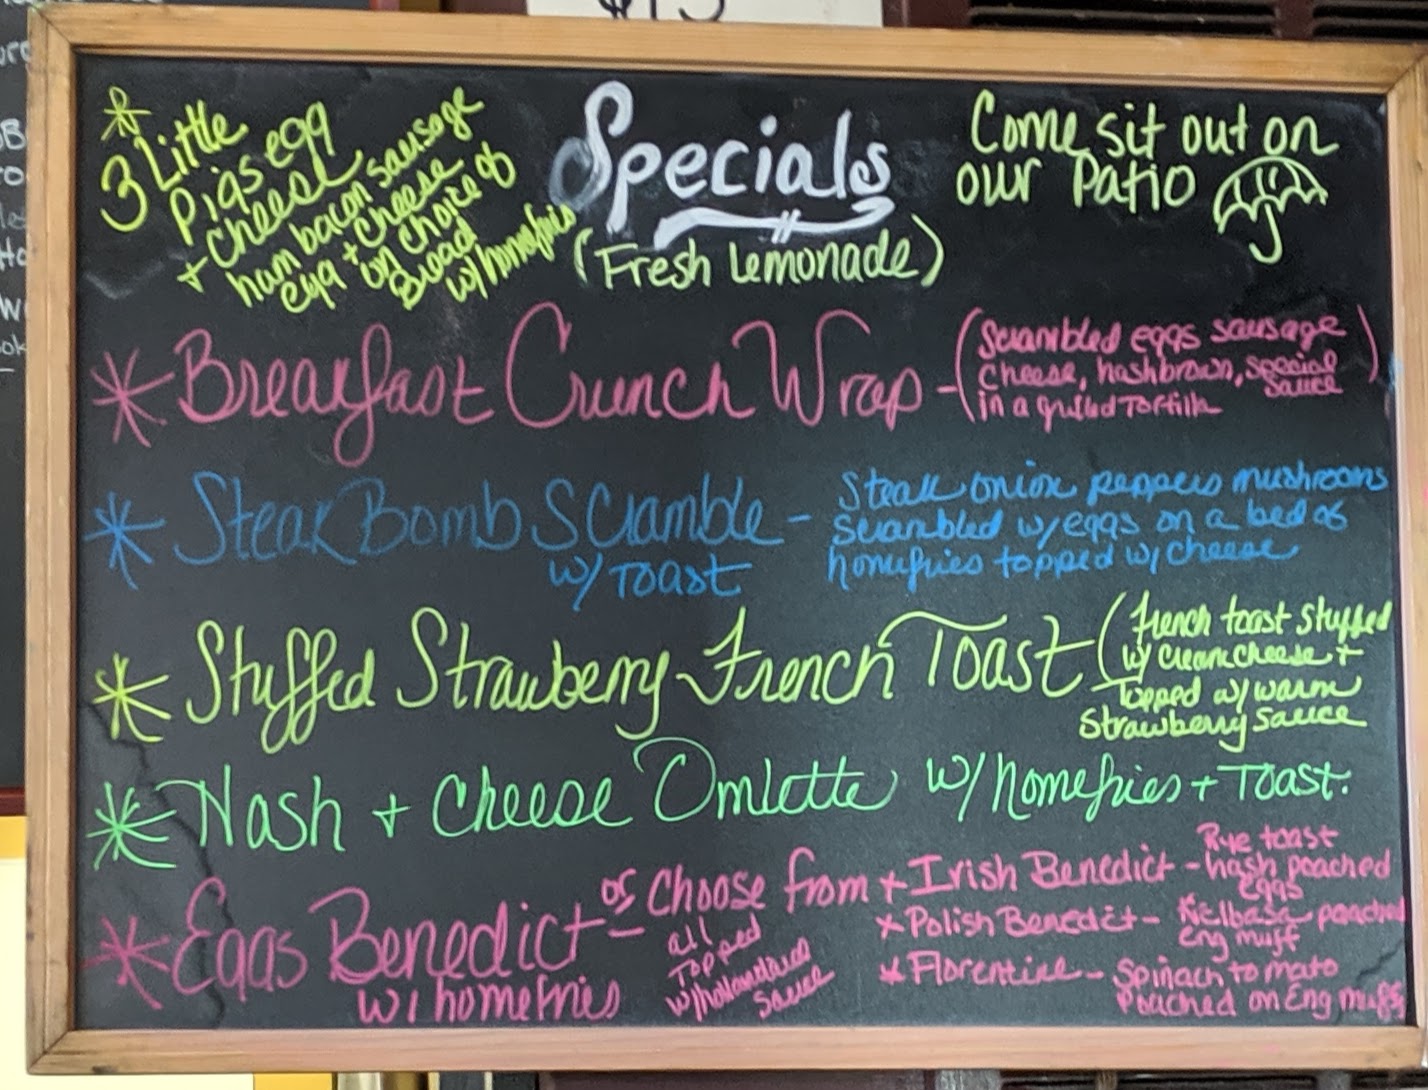 $15
* 3 Little
Pigs egg
+ Cheese
ham bacon sausage
egg + cheese
on choice of
Bread
w/homefries
Specials
(Fresh Lemonade)
Come sit out on
our Patio
* Breakfast Crunch Wrap - (Scrambled eggs sausage
cheese, hashbrown, special
sauce
in a grilled Tortilla)
* Steak Bomb Scramble - Steak onion peppers mushrooms
w/ Toast
scrambled w/eggs on a bed of
homefries topped w/ cheese
* Stuffed Strawberry French Toast (French toast stuffed
w/ cream cheese +
Topped w/ warm
Strawberry sauce
* Hash + Cheese Omlette w/ homefries + Toast.
* Eggs Benedict - or Choose from
w/ homefries
all
Topped
w/hollandaise
sauce
+ Irish Benedict - Rye toast
hash poached
eggs
* Polish Benedict - Kielbasa poached
eng muff
* Florentine - Spinach tomato
Poached on Eng muffs